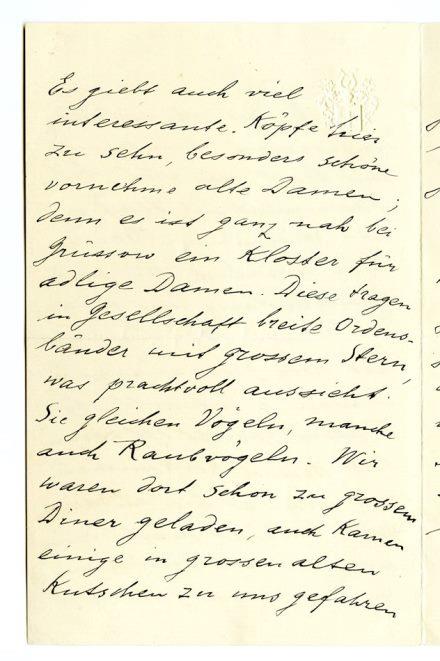 Es giebt auch viel
interessante Köpfe hier
zu sehn, besonders schöne
vornehme alte Damen;
denn es ist ganz nah bei
Grüssow ein Kloster für
adlige Damen. Diese tragen
in Gesellschaft breite Ordens-
bänder mit grossem Stern,
was prachtvoll aussieht.
Sie gleichen Vögeln, manche
auch Raubvögeln. Wir
waren dort schon zu grossem
Diner geladen, auch kamen
einige in grossen alten
Kutschen zu uns gefahren